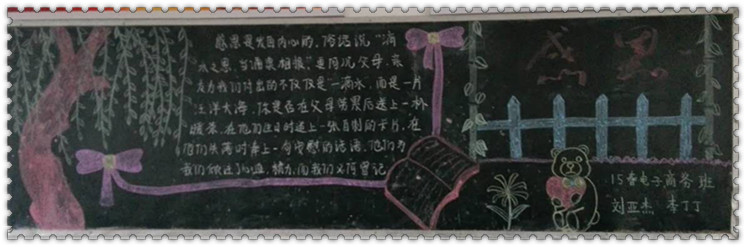 感恩是发自内心的。俗话说“滴
水之恩，当涌泉相报。”更何况父母，亲
友为我们付出的不仅仅是“一滴水”，而是一片
汪洋大海。你是否在父母劳累后递上一杯
暖茶，在他们生日时递上一张自制的卡片，在
他们失落时奉上一番问候与安慰的话语，他们为
我们倾注了心血、精力，而我们又何曾记
感恩
15春电子商务班
刘亚杰 李丁丁